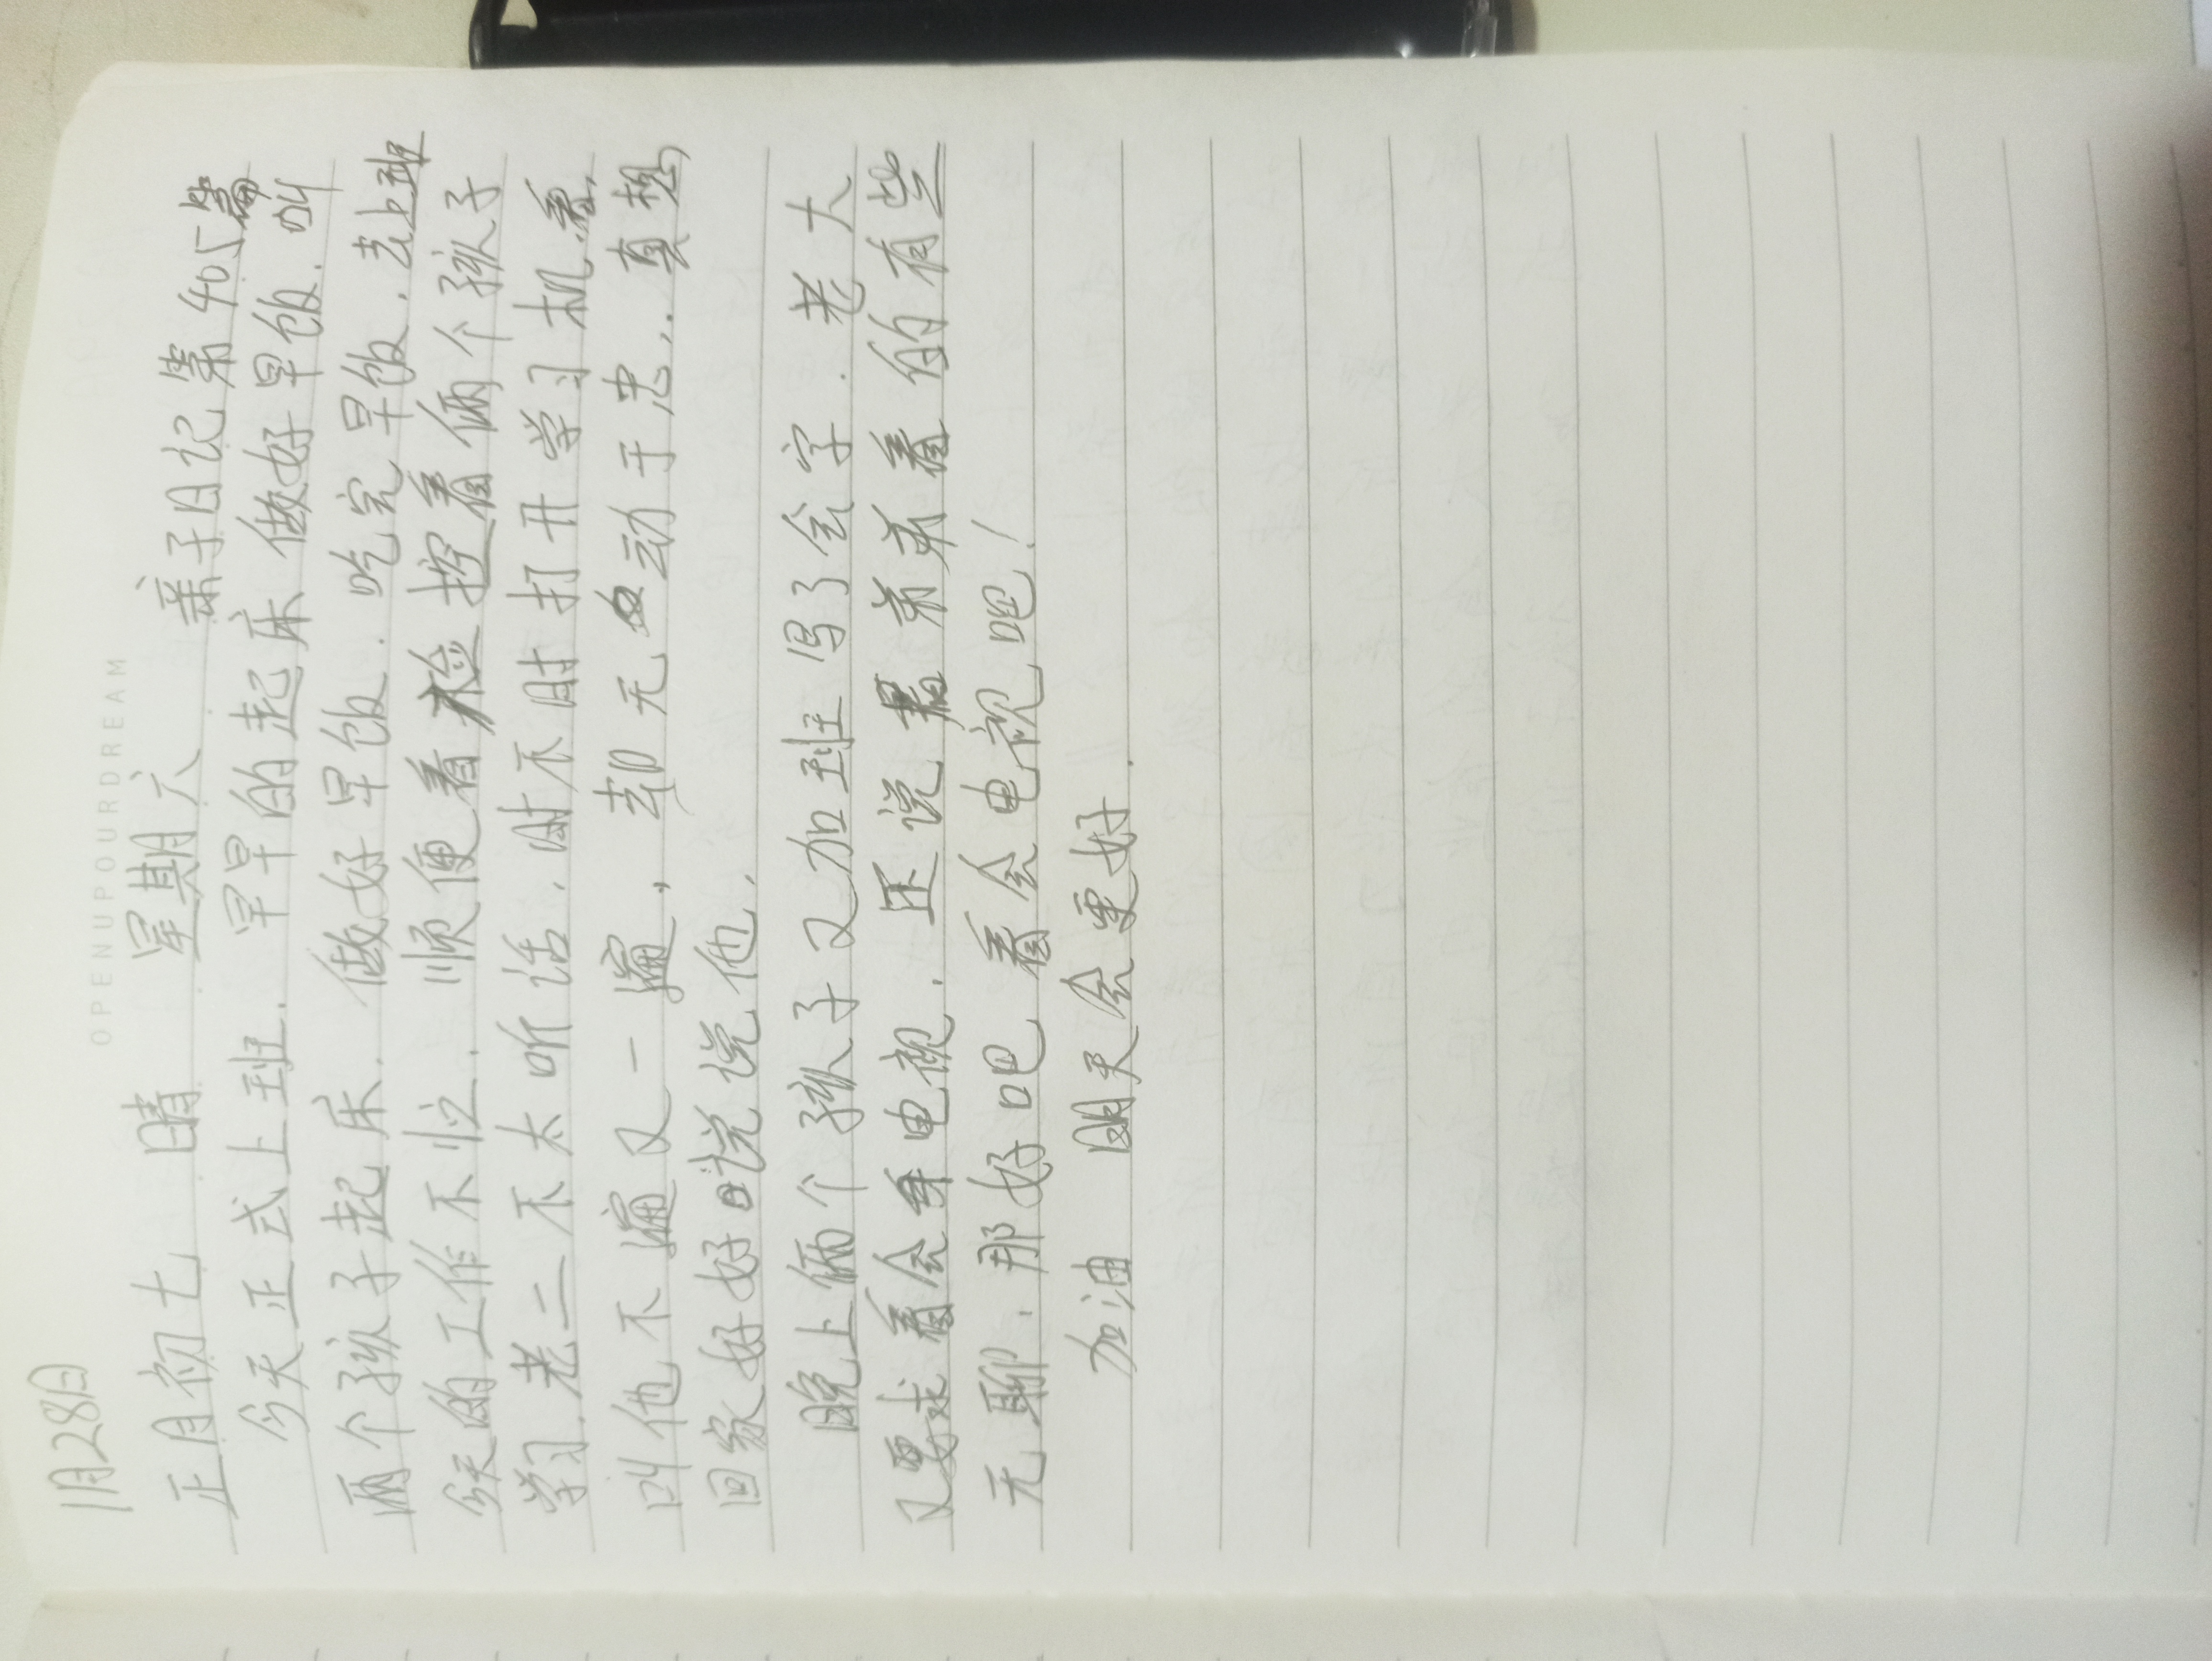 OPENUPOURDREAM
1月28日
正月初七 晴 星期六 亲子日记第405篇
今天正式上班. 早早的起床 做好早饭. 叫
两个孩子起床. 做好早饭. 吃完早饭. 去上班
今天的工作不忙. 顺便看 控着俩个孩子
学习. 老二不太听话. 时不时打开学习机看,
叫他不遍又一遍, 却无动于忠.. 真想
回家好好说说他.
晚上俩个孩子又加班写了会字. 老大
又要求看会电视. 还说 弟弟看的有些
无聊. 那好吧 看会电视吧!
加油 明天会更好.